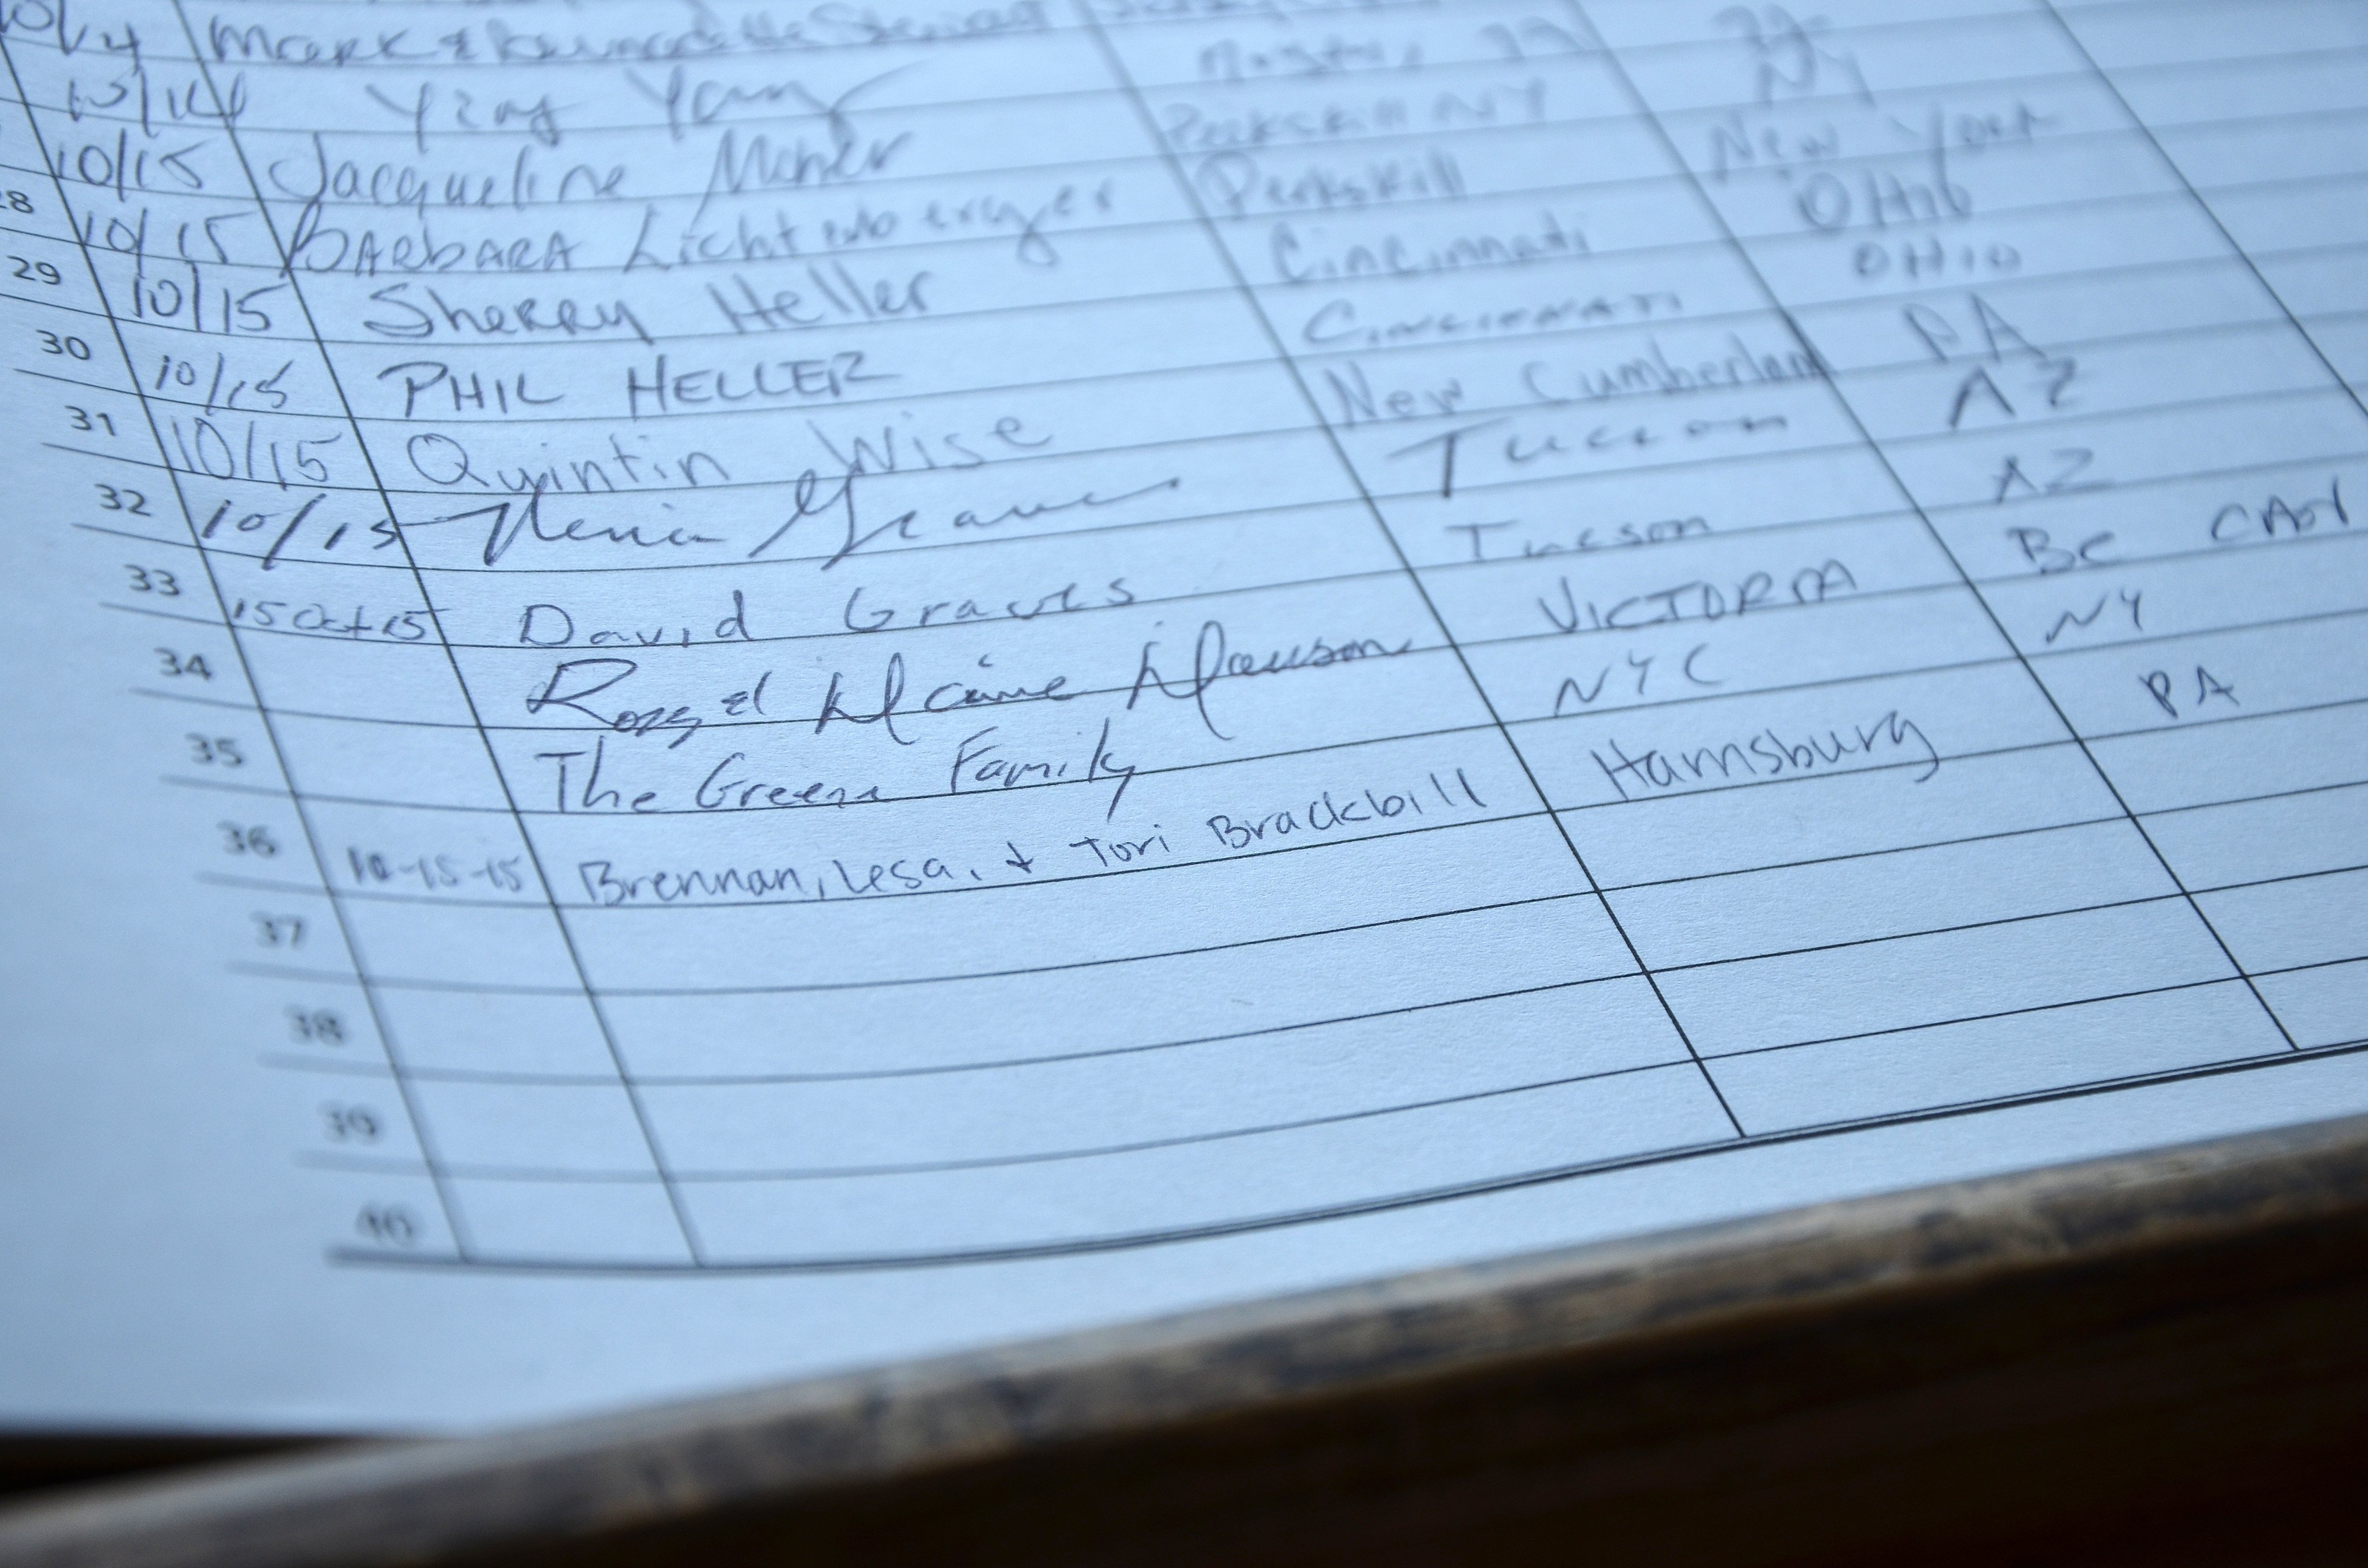 Mark &
10/14 Ying Yang
10/15 Jacqueline Peekskill NY NY
28 10/15 BARBARA Peekskill New York
29 10/15 Sherry Heller Cincinnati OHIO
30 10/15 PHIL HELLER Cincinnati OHIO
31 10/15 Quintin Wise New Cumberland PA
32 10/15 Graves Tucson AZ
33 15 Oct 15 David Graves Tucson AZ
34 & VICTORIA BC
35 The Green Family NYC NY
36 10-15-15 Brennan, Lesa, + Tori Brackbill Harrisburg PA
37
38
39
40